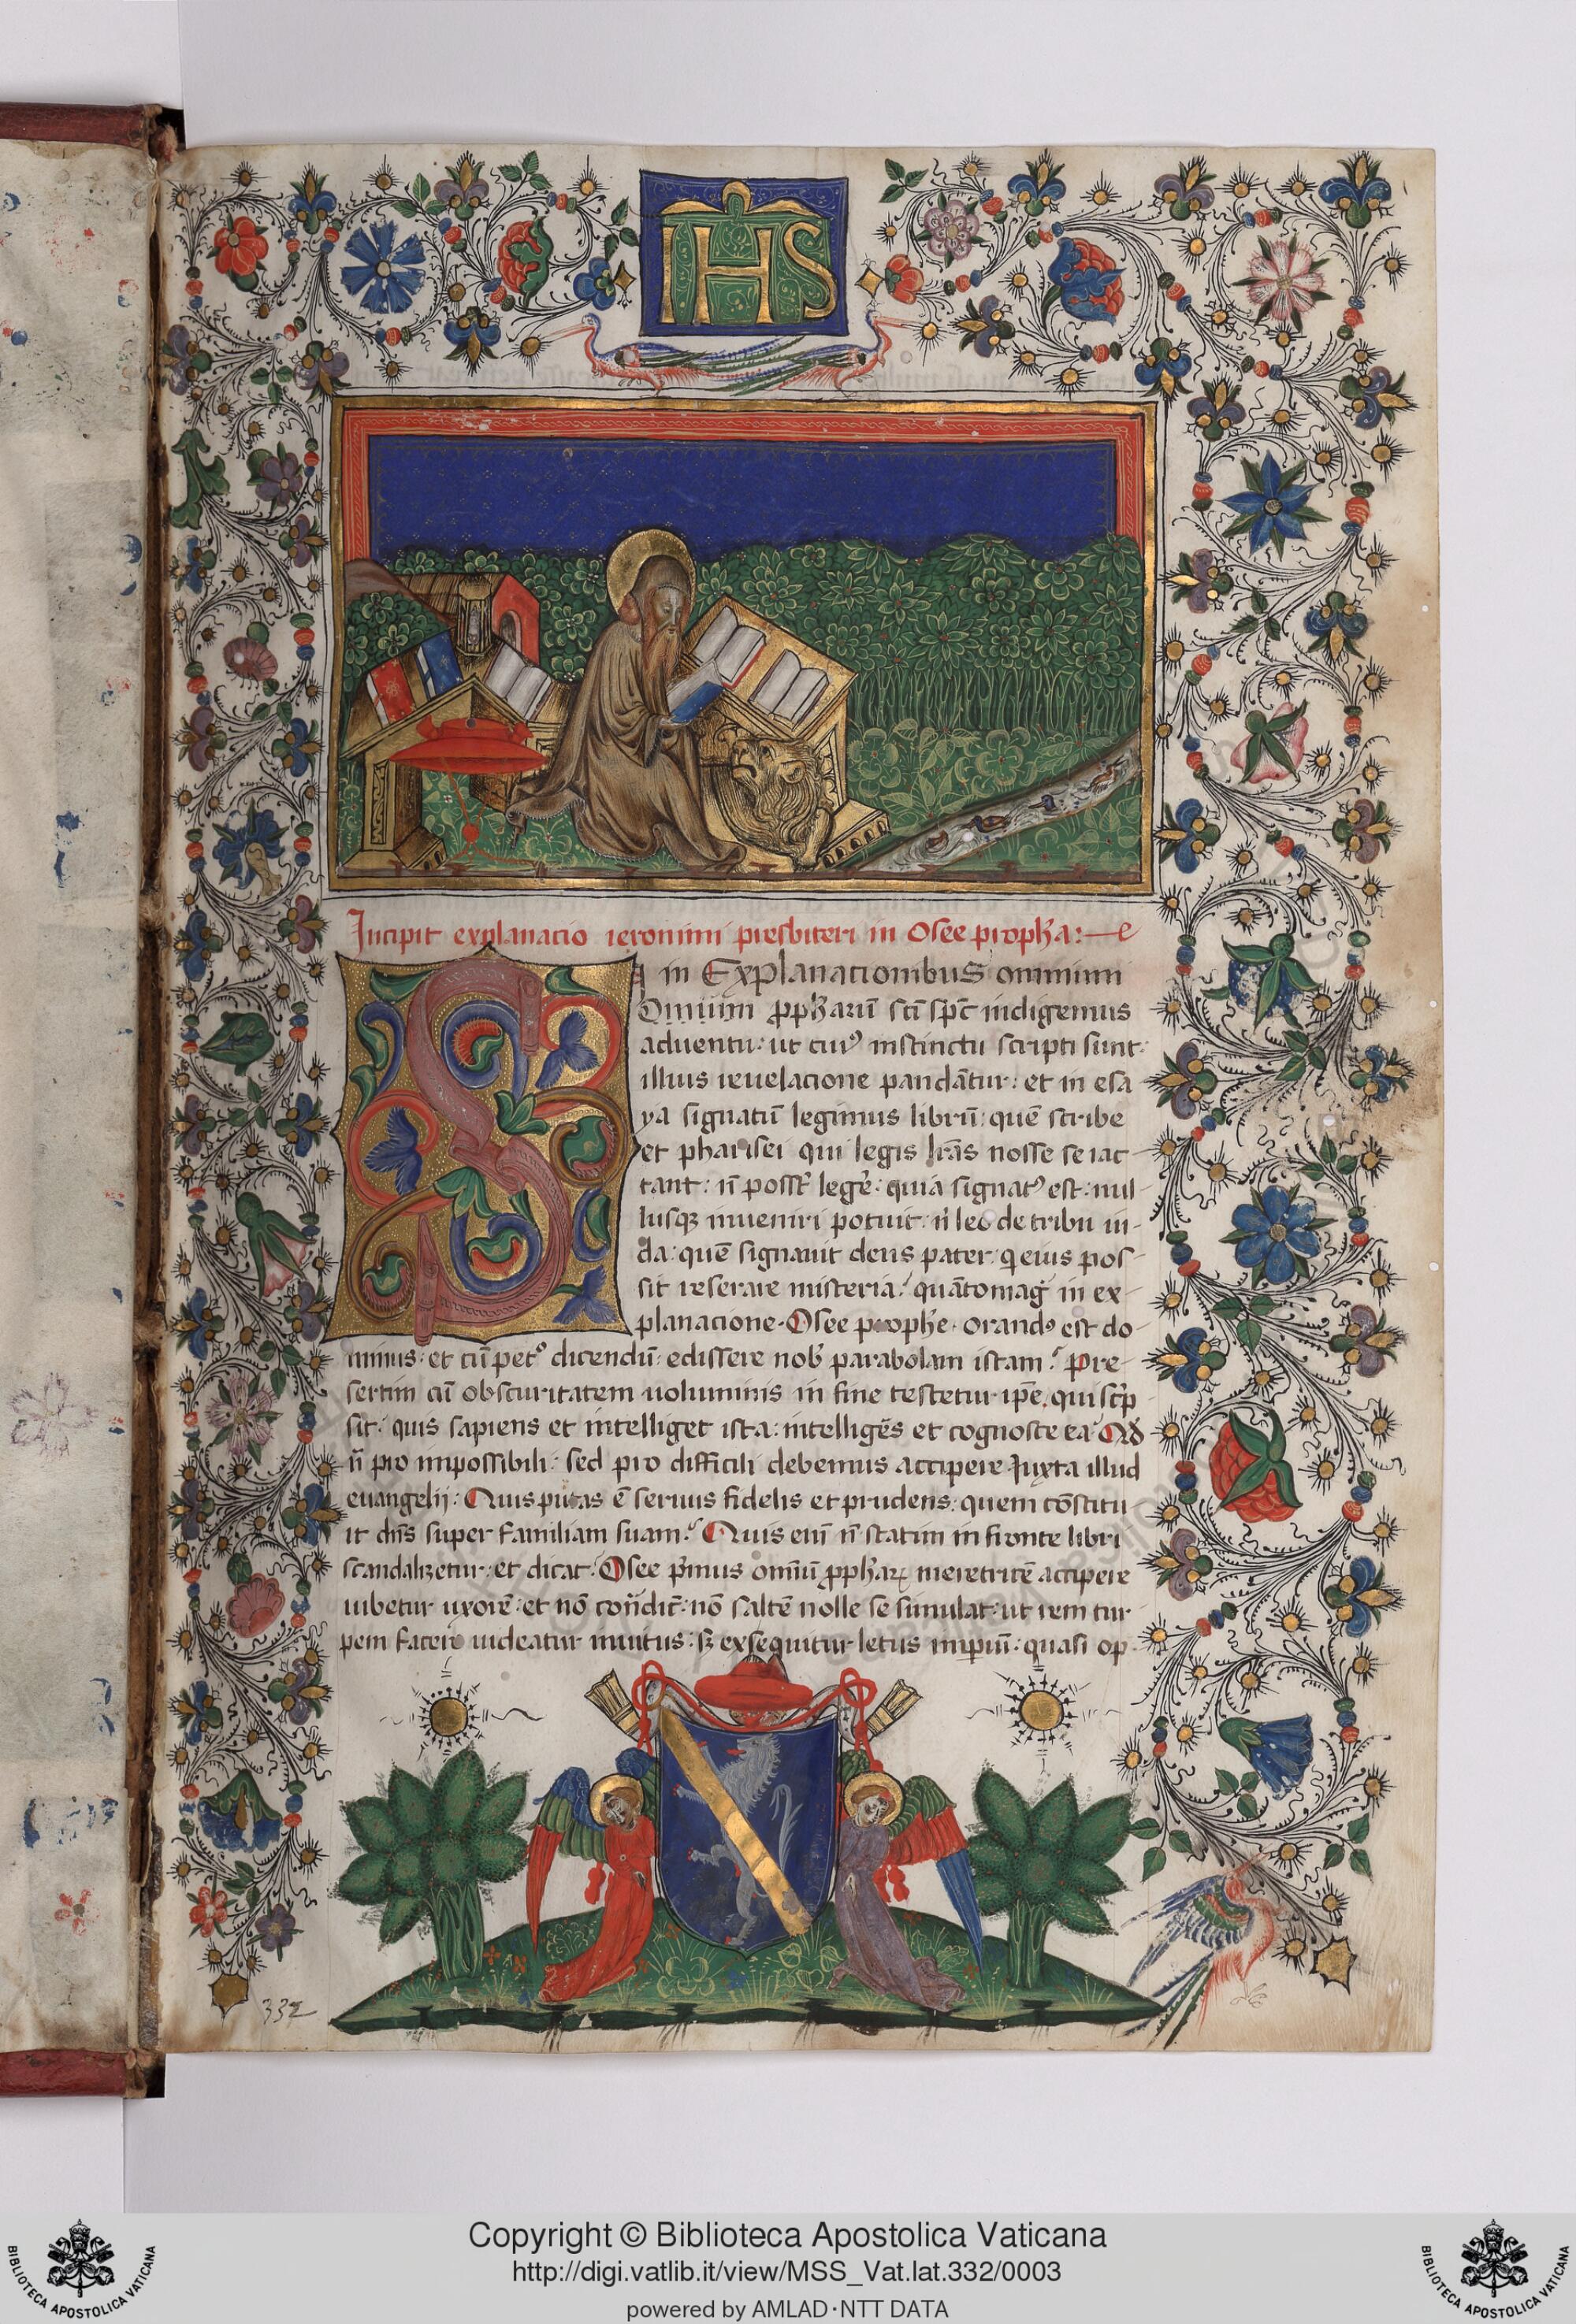 IHS
Incipit explanacio ieronimi presbiteri in Osee proph̄a:
SI in Explanationibus omnium
Omium ꝓpharū scī sp̄c indigemus
aduentu: ut cuiꝰ instinctu scripti sunt:
illius reuelacione pandātur: et in esa
ya signatū legimus librū: quē scribe
et pharisei qui legis lrās nosse se iac-
tant: n̄ posst̄ leger̄: quia signatꝰ est: nul-
lusqꝫ inueniri potuit: ni leo de tribu iu-
da: quē signauit deus pater: q eius pos-
sit reserare misteria: quātomag̓ in ex-
planacione Osee prophe: orandꝰ est do-
minus: et cū petꝰ dicendū: edissere nob̓ parabolam istam: Pre-
sertim cū obscuritatem uoluminis in fine testetur ip̄e, qui scꝛ̄p-
sit: quis sapiens et intelliget ista: intelligēs et cognoscet ea: Qd̄
n̄ pro impossibili: sed pro difficili debemus accipere Iuxta illud
euangelij: Quis putas ē seruus fidelis et prudens: quem cōstitu
it dn̄s super familiam suam: Quis eni n̄ statim in fronte libri
scandalizetur: et dicat: Osee pꝛ̄mus omniū ꝓpharꝝ meretricē accipere
iubetur uxorē: et nō cont̄dic̄: nō saltē nolle se simulat: ut rem tur-
pem facere uideatur inuitus: sꝫ exsequitur letus imꝑiū: quasi op-
332
Copyright © Biblioteca Apostolica Vaticana
http://digi.vatlib.it/view/MSS_Vat.lat.332/0003
powered by AMLAD·NTT DATA
BIBLIOTECA APOSTOLICA VATICANA
BIBLIOTECA APOSTOLICA VATICANA